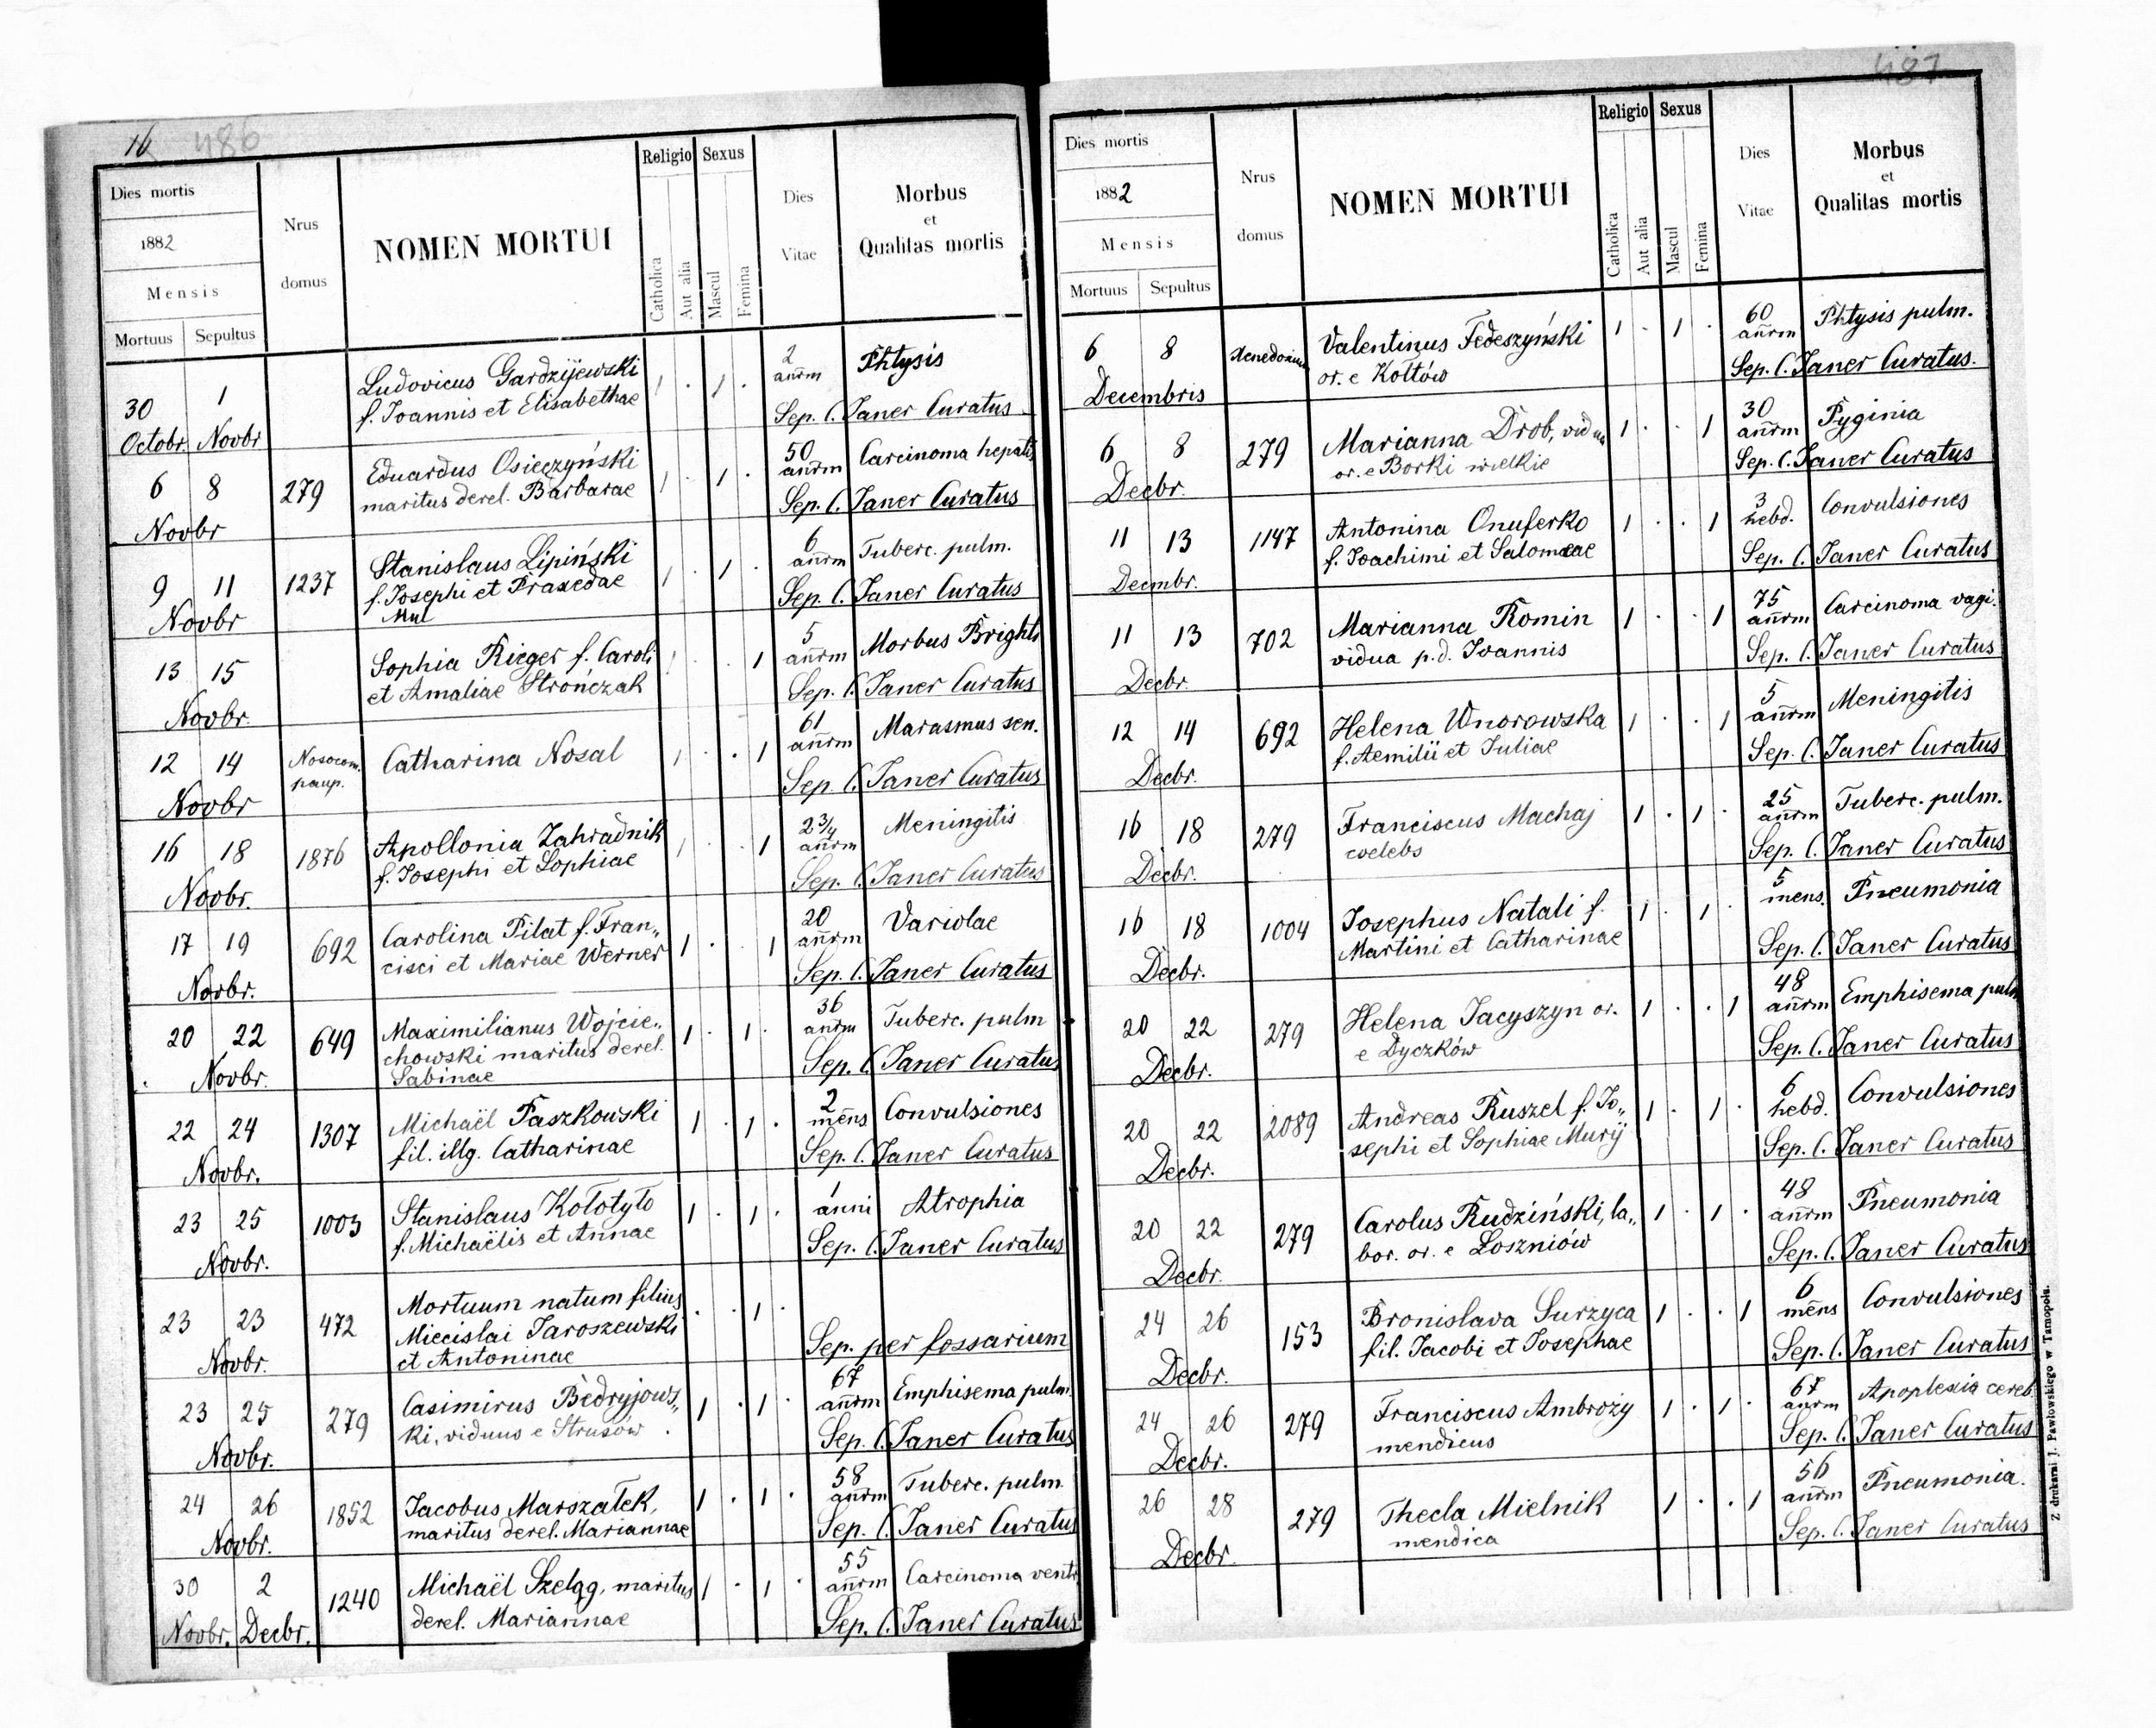 16 486
Dies mortis
1882
Mensis
Mortuus Sepultus
Nrus domus
NOMEN MORTUI
Religio
Catholica
Aut alia
Sexus
Mascul
Femina
Dies Vitae
Morbus
et
Qualitas mortis
30 1 Ludovicus Gardzijewski 1 . 1 . 2 Phtysis
f. Joannis et Elisabethae añrm
Octobr. Novbr Sep. C. Janer Curatus
6 8 279 Eduardus Osieczyński 1 . 1 . 50 Carcinoma hepatis
maritus derel. Barbarae añrm
Novbr Sep. C. Janer Curatus
9 11 1237 Stanislaus Lipiński 1 . 1 . 6 Tuberc. pulm.
f. Josephi et Praxedae añrm
Mul
Novbr Sep. C. Janer Curatus
13 15 Sophia Rieger f. Caroli 1 . . 1 5 Morbus Brighti
et Amaliae Strończak añrm
Novbr. Sep. C. Janer Curatus
12 14 Nosocom. paup. Catharina Nosal 1 . . 1 61 Marasmus sen.
añrm
Novbr Sep. C. Janer Curatus
16 18 1876 Apollonia Zahradnik 1 . . 1 2 3/4 Meningitis
f. Josephi et Sophiae añrm
Novbr. Sep. C. Janer Curatus
17 19 692 Carolina Pilat f. Fran„ 1 . . 1 20 Variolae
cisci et Mariae Werner añrm
Novbr. Sep. C. Janer Curatus
20 22 649 Maximilianus Wojcie„ 1 . 1 . 36 Tuberc. pulm
chowski maritus derel. añrm
Sabinae
Novbr. Sep. C. Janer Curatus
22 24 1307 Michaël Paszkowski 1 . 1 . 2 Convulsiones
fil. illg. Catharinae mēns
Novbr. Sep. C. Janer Curatus
23 25 1003 Stanislaus Kołotyło 1 . 1 . 1 Atrophia
f. Michaëlis et Annae anni
Novbr. Sep. C. Janer Curatus
23 23 472 Mortuum natum filius . . 1 .
Miecislai Jaroszewski
et Antoninae
Novbr. Sep. per fossarium
23 25 279 Casimirus Bedryjows„ 1 . 1 . 67 Emphisema pulm.
ki, viduus e Strusów añrm
Novbr. Sep. C. Janer Curatus
24 26 1852 Jacobus Marszałek, 1 . 1 . 58 Tuberc. pulm
maritus derel. Mariannae añrm
Novbr. Sep. C. Janer Curatus
30 2 1240 Michaël Szeląg, maritus 1 . 1 . 55 Carcinoma ventr
derel. Mariannae añrm
Novbr. Decbr. Sep. C. Janer Curatus
487
Dies mortis
1882
Mensis
Mortuus Sepultus
Nrus domus
NOMEN MORTUI
Religio
Catholica
Aut alia
Sexus
Mascul
Femina
Dies Vitae
Morbus
et
Qualitas mortis
6 8 Valentinus Fedeszyński 1 . 1 . 60 Phtysis pulm.
or. e Kołtów añrm
Decembris Sep. C. Janer Curatus.
6 8 279 Marianna Drob, vidua 1 . . 1 30 Pyginia
or. e Borki wielkie añrm
Decbr. Sep. C. Janer Curatus
11 13 1147 Antonina Onuferko 1 . . 1 3 Convulsiones
f. Joachimi et Salomeae hebd.
Decmbr. Sep. C. Janer Curatus
11 13 702 Marianna Romin 1 . . 1 75 Carcinoma vagi.
vidua p.d. Joannis añrm
Decbr. Sep. C. Janer Curatus
12 14 692 Helena Wnorowska 1 . . 1 5 Meningitis
f. Aemilii et Juliae añrm
Decbr. Sep. C. Janer Curatus
16 18 279 Franciscus Machaj 1 . 1 . 25 Tuberc. pulm.
coelebs añrm
Decbr. Sep. C. Janer Curatus
16 18 1004 Josephus Natali f. 1 . 1 . 5 Pneumonia
Martini et Catharinae mens.
Decbr. Sep. C. Janer Curatus
20 22 279 Helena Jacyszyn or. 1 . . 1 48 Emphisema pulm
e Dyczków añrm
Decbr. Sep. C. Janer Curatus
20 22 2089 Andreas Ruszel f. Jo„ 1 . 1 . 6 Convulsiones
sephi et Sophiae Murij hebd.
Decbr. Sep. C. Janer Curatus
20 22 279 Carolus Rudziński, la„ 1 . 1 . 48 Pneumonia
bor. or. e Łoszniów añrm
Decbr. Sep. C. Janer Curatus
24 26 153 Bronislava Surzyca 1 . . 1 6 Convulsiones
fil. Jacobi et Josephae mēns
Decbr. Sep. C. Janer Curatus
24 26 279 Franciscus Ambroży 1 . 1 . 67 Apoplexia cereb.
mendicus añrm
Decbr. Sep. C. Janer Curatus
26 28 279 Thecla Mielnik 1 . . 1 56 Pneumonia.
mendica añrm
Decbr. Sep. C. Janer Curatus
Z drukarni J. Pawłowskiego w Tarnopolu.